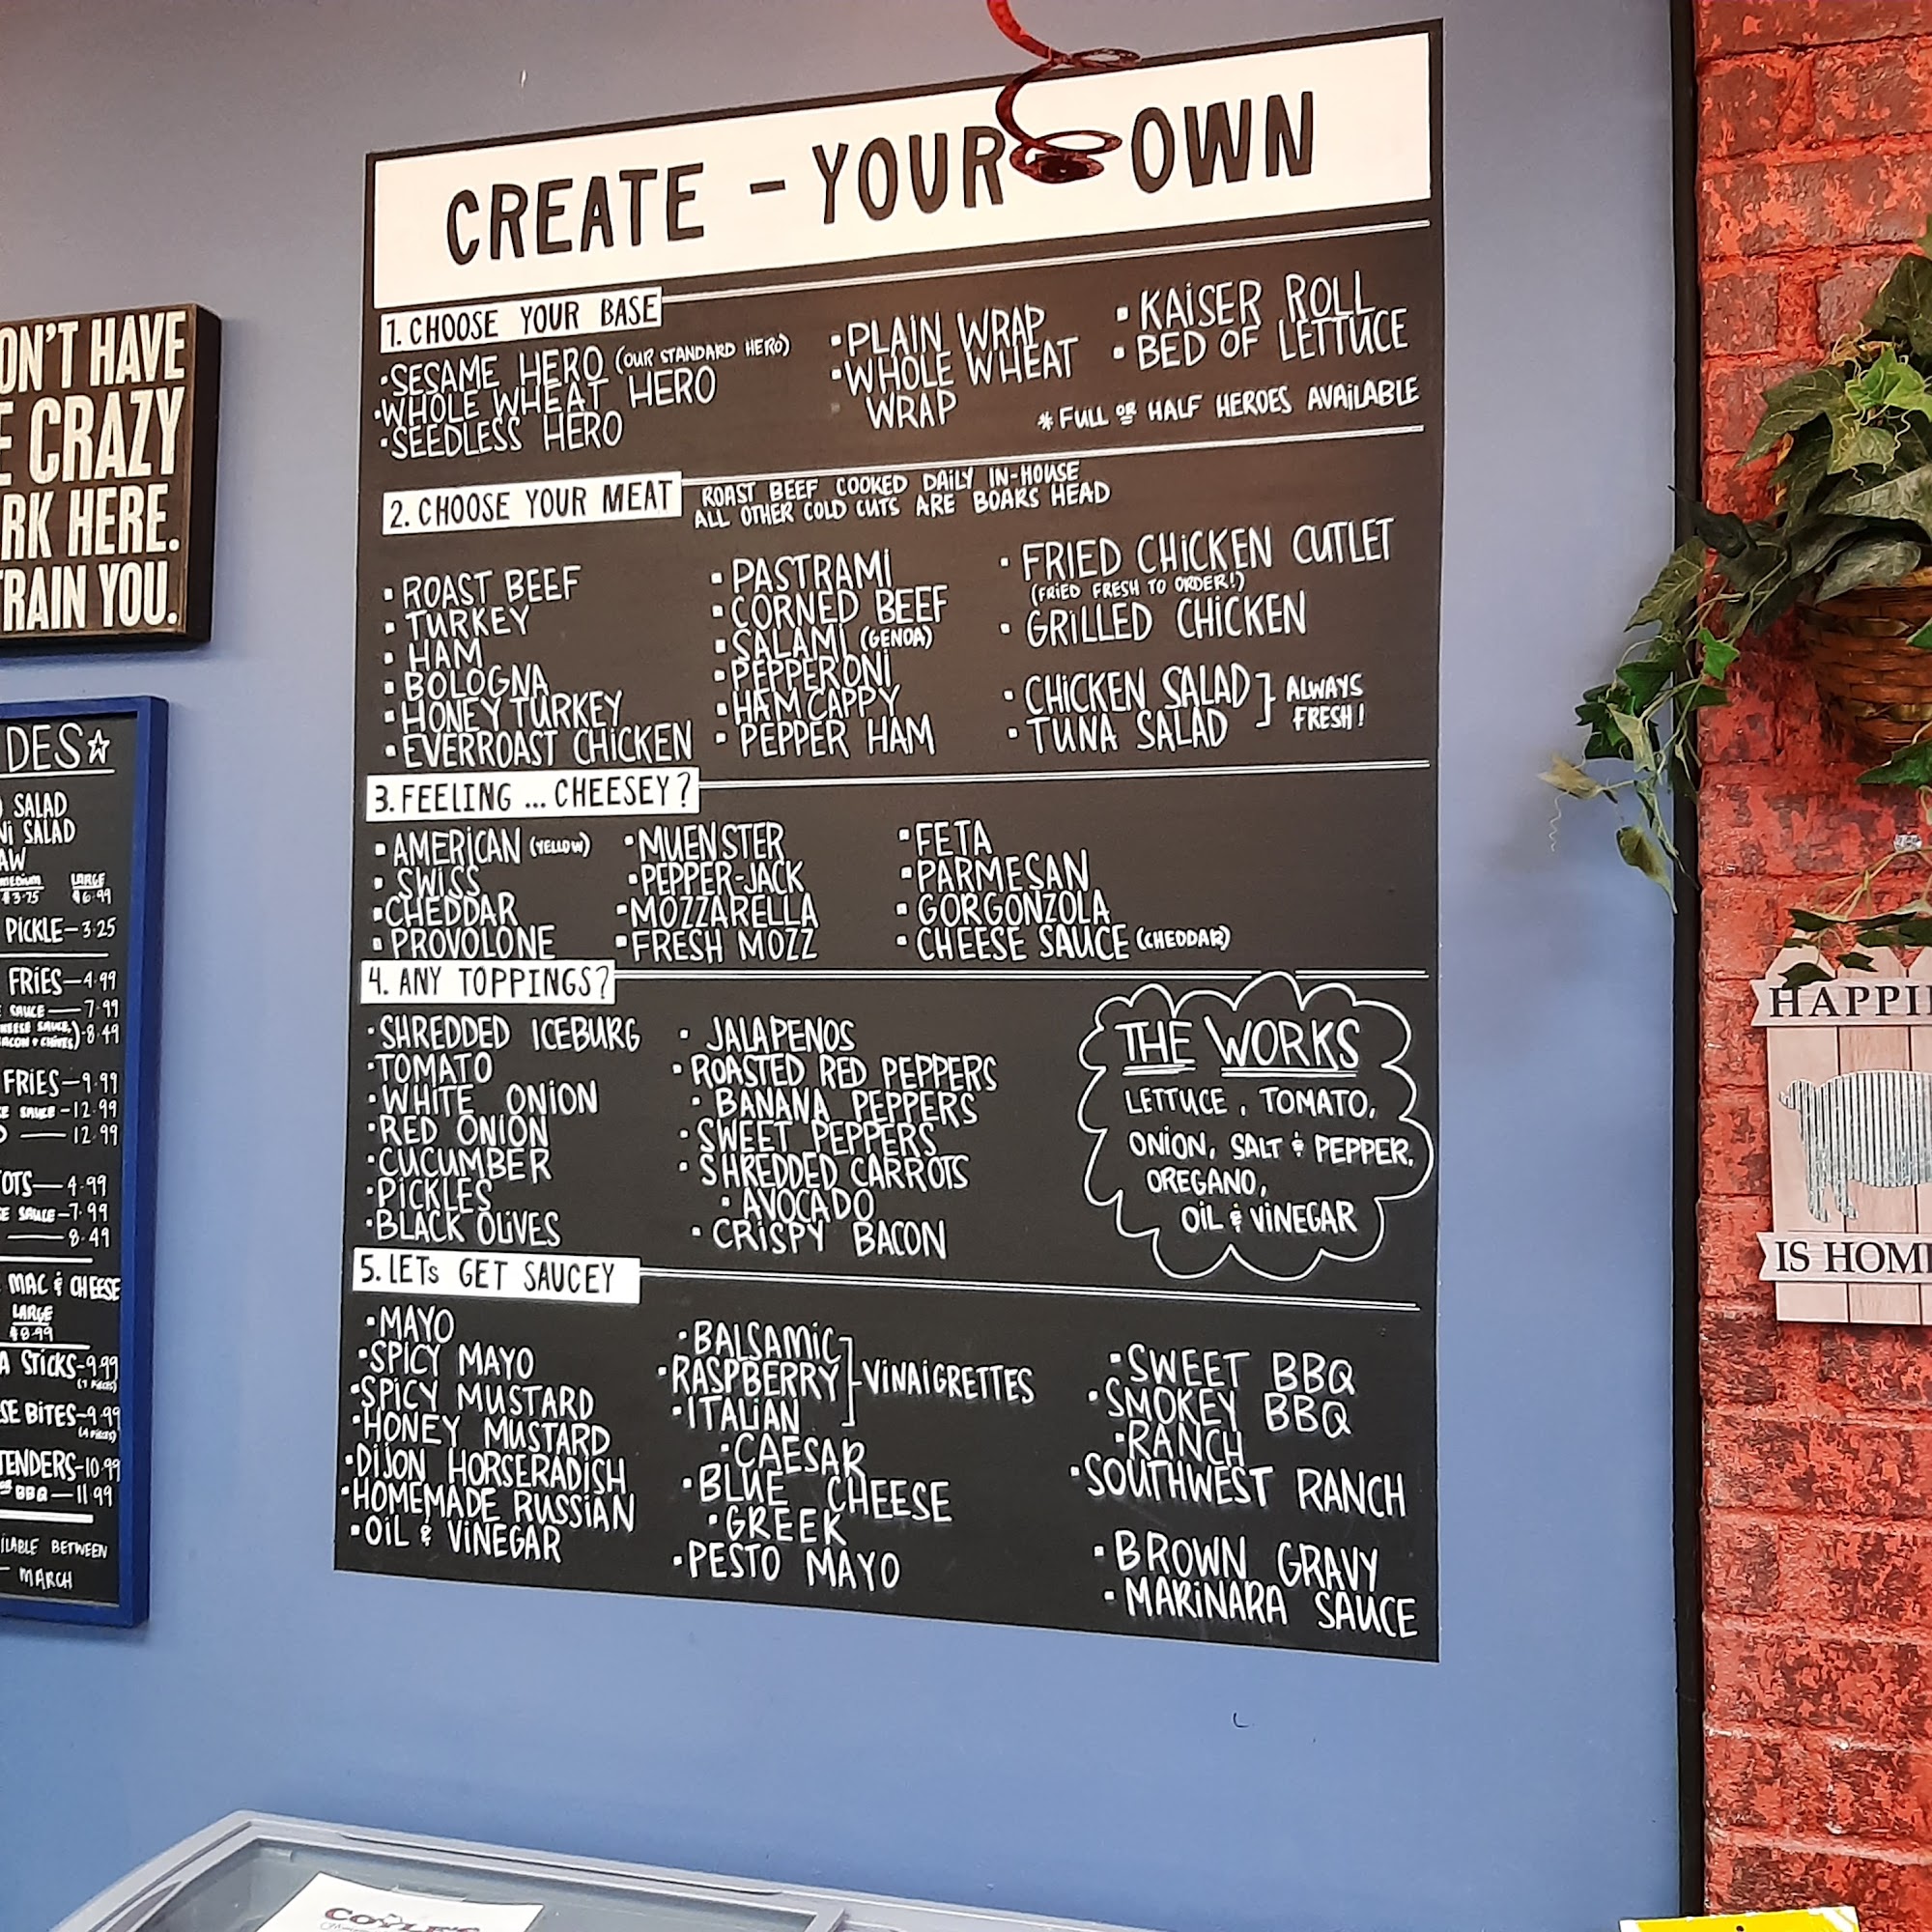 ON'T HAVE
CRAZY
RK HERE.
RAIN YOU.
DES☆
SALAD
SALAD
AW
MEDIUM LARGE
$3.75 $6.99
PICKLE—3.25
FRIES—4.99
SAUCE—7.99
8.49
FRIES—9.99
SAUCE—12.99
12.99
OTS—4.99
SAUCE—7.99
8.49
MAC & CHEESE
LARGE
$8.99
STICKS-9.99
SE BITES-9.99
TENDERS-10.99
BBQ—11.99
ILABLE BETWEEN
MARCH
CREATE - YOUR OWN
1. CHOOSE YOUR BASE
▪SESAME HERO (OUR STANDARD HERO)
▪WHOLE WHEAT HERO
▪SEEDLESS HERO
▪PLAIN WRAP
▪WHOLE WHEAT
WRAP
▪KAISER ROLL
▪BED OF LETTUCE
* FULL OR HALF HEROES AVAILABLE
2. CHOOSE YOUR MEAT
ROAST BEEF COOKED DAILY IN-HOUSE
ALL OTHER COLD CUTS ARE BOARS HEAD
▪ROAST BEEF
▪TURKEY
▪HAM
▪BOLOGNA
▪HONEY TURKEY
▪EVERROAST CHICKEN
▪PASTRAMI
▪CORNED BEEF
▪SALAMI (GENOA)
▪PEPPERONI
▪HAM CAPPY
▪PEPPER HAM
▪FRIED CHICKEN CUTLET
(FRIED FRESH TO ORDER!)
▪GRILLED CHICKEN
▪CHICKEN SALAD
▪TUNA SALAD
ALWAYS
FRESH!
3. FEELING ... CHEESEY?
▪AMERICAN (YELLOW)
▪SWISS
▪CHEDDAR
▪PROVOLONE
▪MUENSTER
▪PEPPER-JACK
▪MOZZARELLA
▪FRESH MOZZ
▪FETA
▪PARMESAN
▪GORGONZOLA
▪CHEESE SAUCE (CHEDDAR)
4. ANY TOPPINGS?
▪SHREDDED ICEBURG
▪TOMATO
▪WHITE ONION
▪RED ONION
▪CUCUMBER
▪PICKLES
▪BLACK OLIVES
▪JALAPENOS
▪ROASTED RED PEPPERS
▪BANANA PEPPERS
▪SWEET PEPPERS
▪SHREDDED CARROTS
▪AVOCADO
▪CRISPY BACON
THE WORKS
LETTUCE, TOMATO,
ONION, SALT & PEPPER,
OREGANO,
OIL & VINEGAR
5. LETs GET SAUCEY
▪MAYO
▪SPICY MAYO
▪SPICY MUSTARD
▪HONEY MUSTARD
▪DIJON HORSERADISH
▪HOMEMADE RUSSIAN
▪OIL & VINEGAR
▪BALSAMIC
▪RASPBERRY
▪ITALIAN
VINAIGRETTES
▪CAESAR
▪BLUE CHEESE
▪GREEK
▪PESTO MAYO
▪SWEET BBQ
▪SMOKEY BBQ
▪RANCH
▪SOUTHWEST RANCH
▪BROWN GRAVY
▪MARINARA SAUCE
HAPPI
IS HOM
COYLE'S